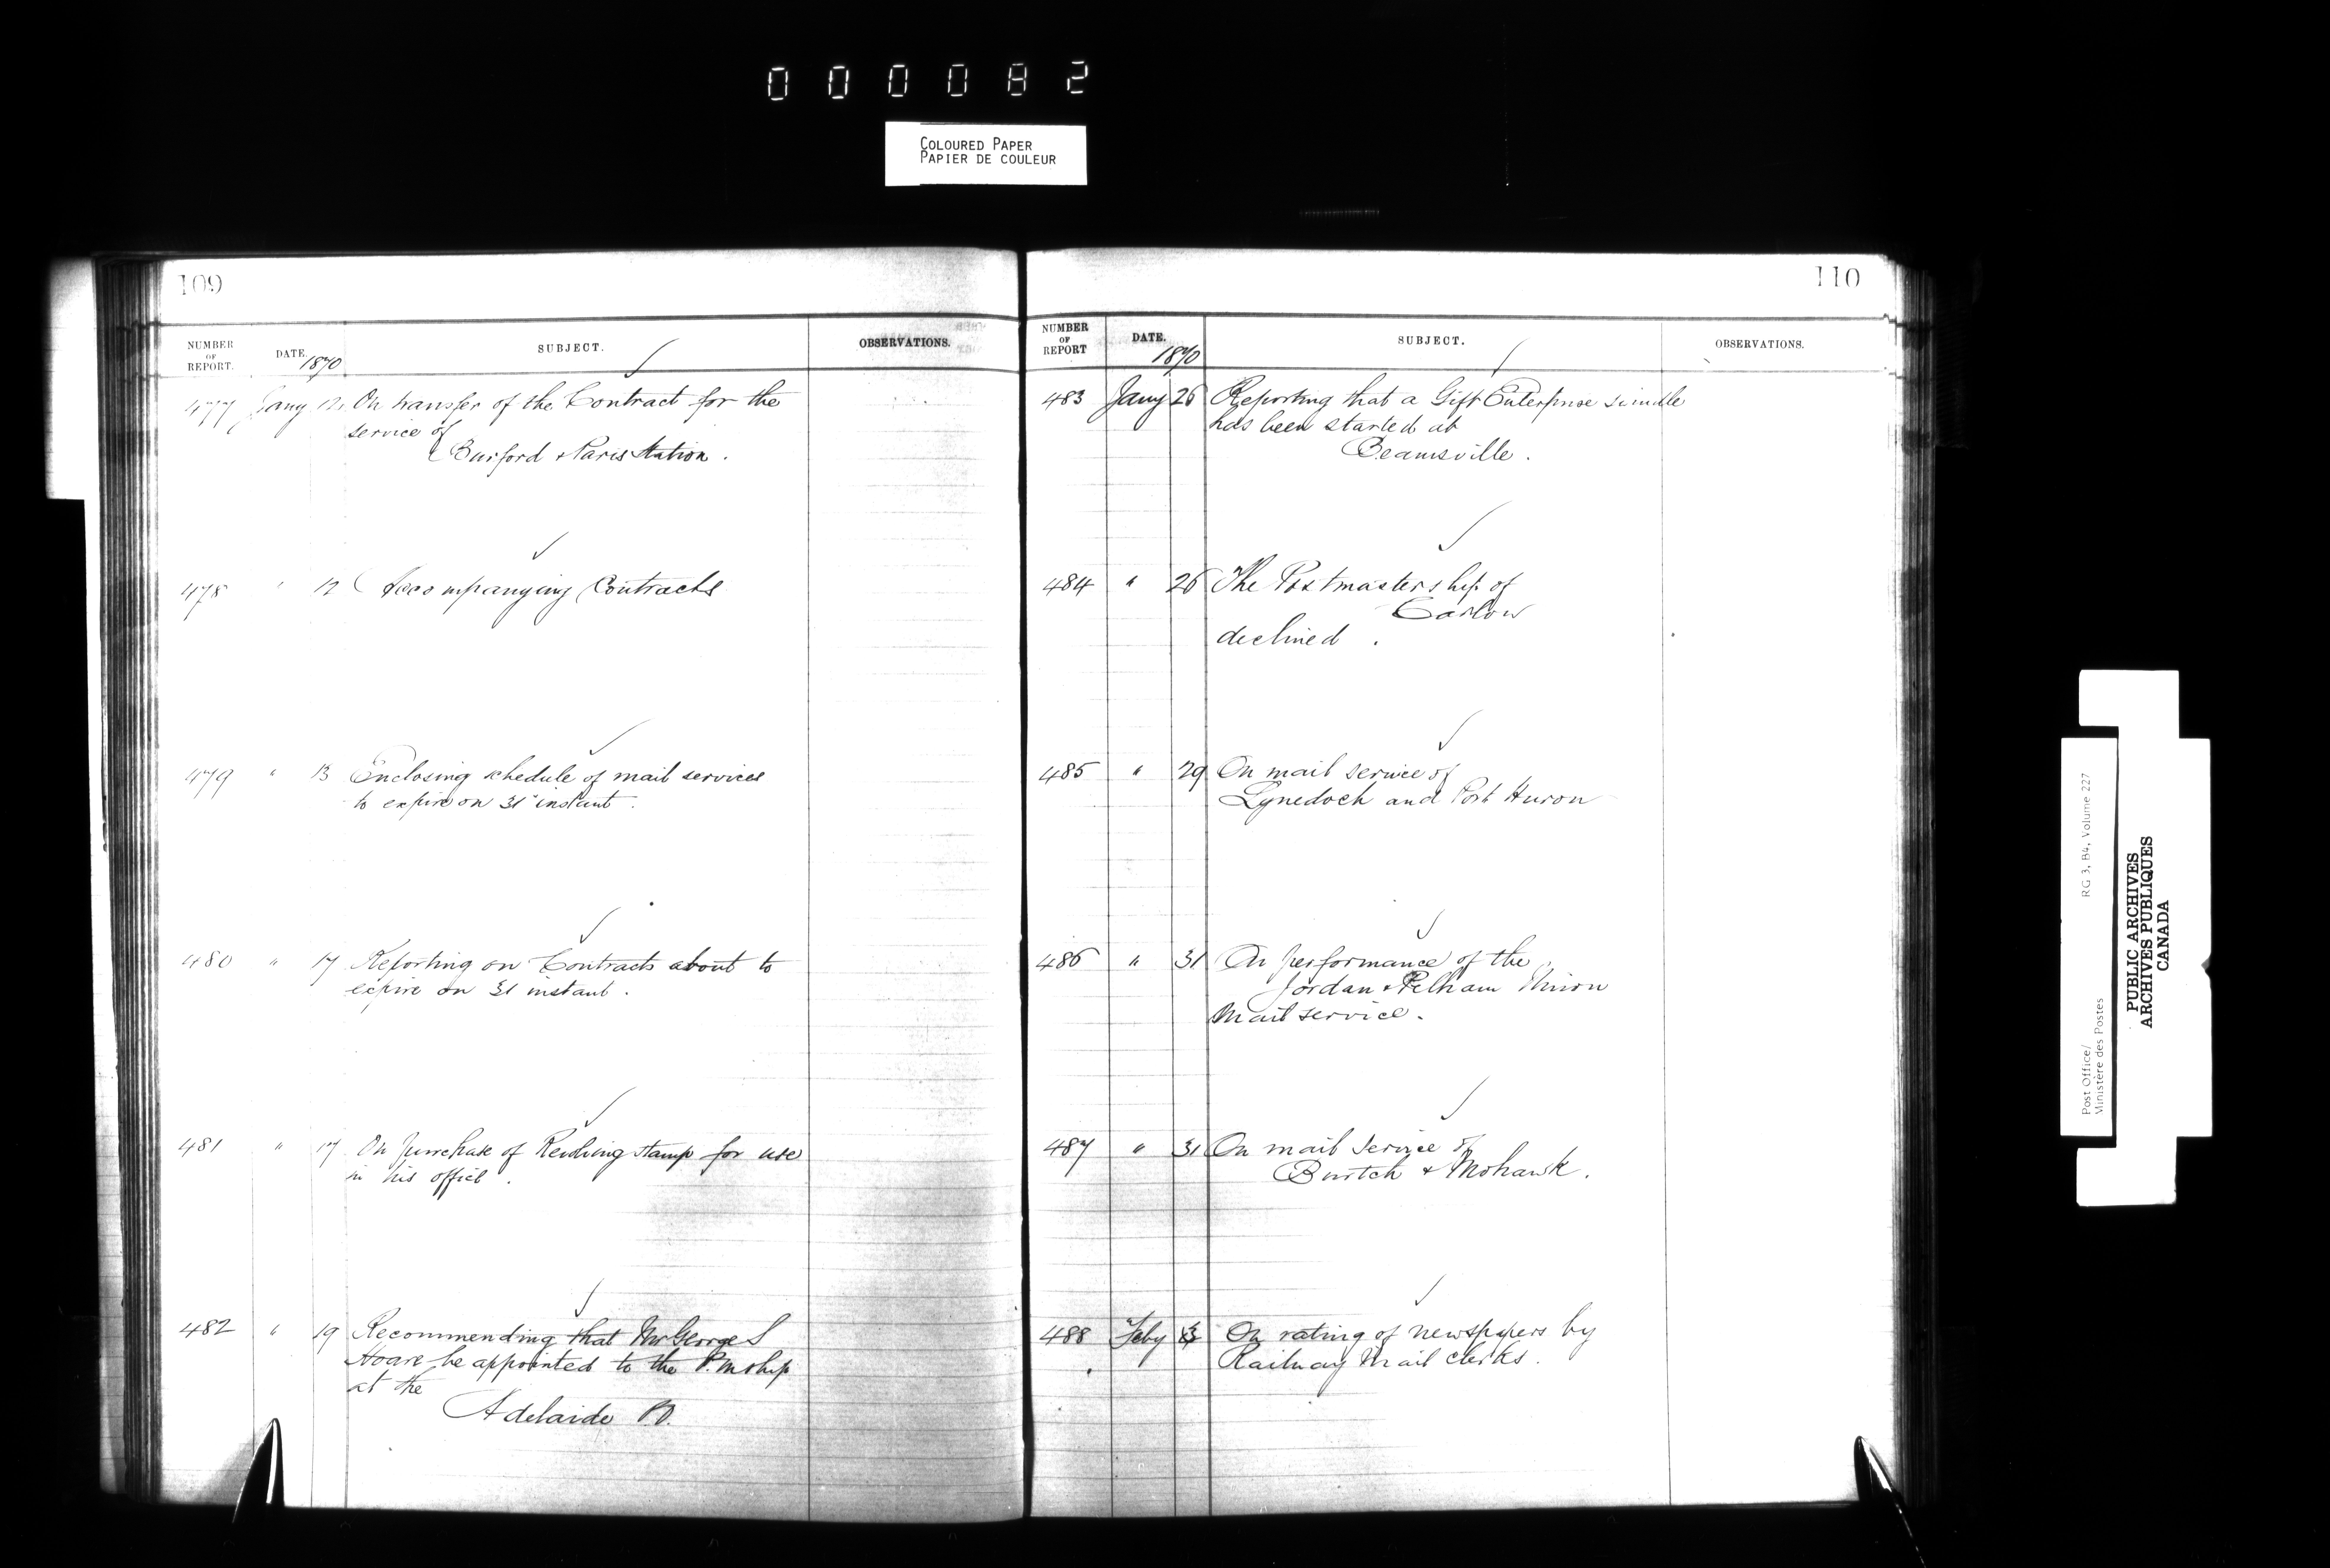 000082
COLOURED PAPER
PAPIER DE COULEUR
109
NUMBER OF REPORT. DATE. 1870 SUBJECT. OBSERVATIONS.
477 Jany 12 On transfer of the Contract for the
service of
Burford & Paris Station.
478 " 12 Accompanying Contracts
479 " 13 Enclosing schedule of mail services
to expire on 31st instant.
480 " 17 Reporting on Contracts about to
expire on 31 instant.
481 " 17 On purchase of Revolving stamp for use
in his office.
482 " 19 Recommending that Mr George S
Hoare be appointed to the P.mship
at the
Adelaide P.O.
110
NUMBER OF REPORT DATE. 1870 SUBJECT. OBSERVATIONS.
483 Jany 26 Reporting that a Gift Enterprise swindle
has been started at
Beamsville.
484 " 26 The Postmastership of
Carlow
declined.
485 " 29 On mail service of
Lynedoch and Port Huron
486 " 31 On performance of the
Jordan & Pelham Union
Mail service.
487 " 31 On mail service of
Burtch & Mohawk.
488 Feby 3 On rating of newspapers by
Railway Mail clerks.
Post Office/ RG 3, B4, Volume 227
Ministère des Postes
PUBLIC ARCHIVES
ARCHIVES PUBLIQUES
CANADA